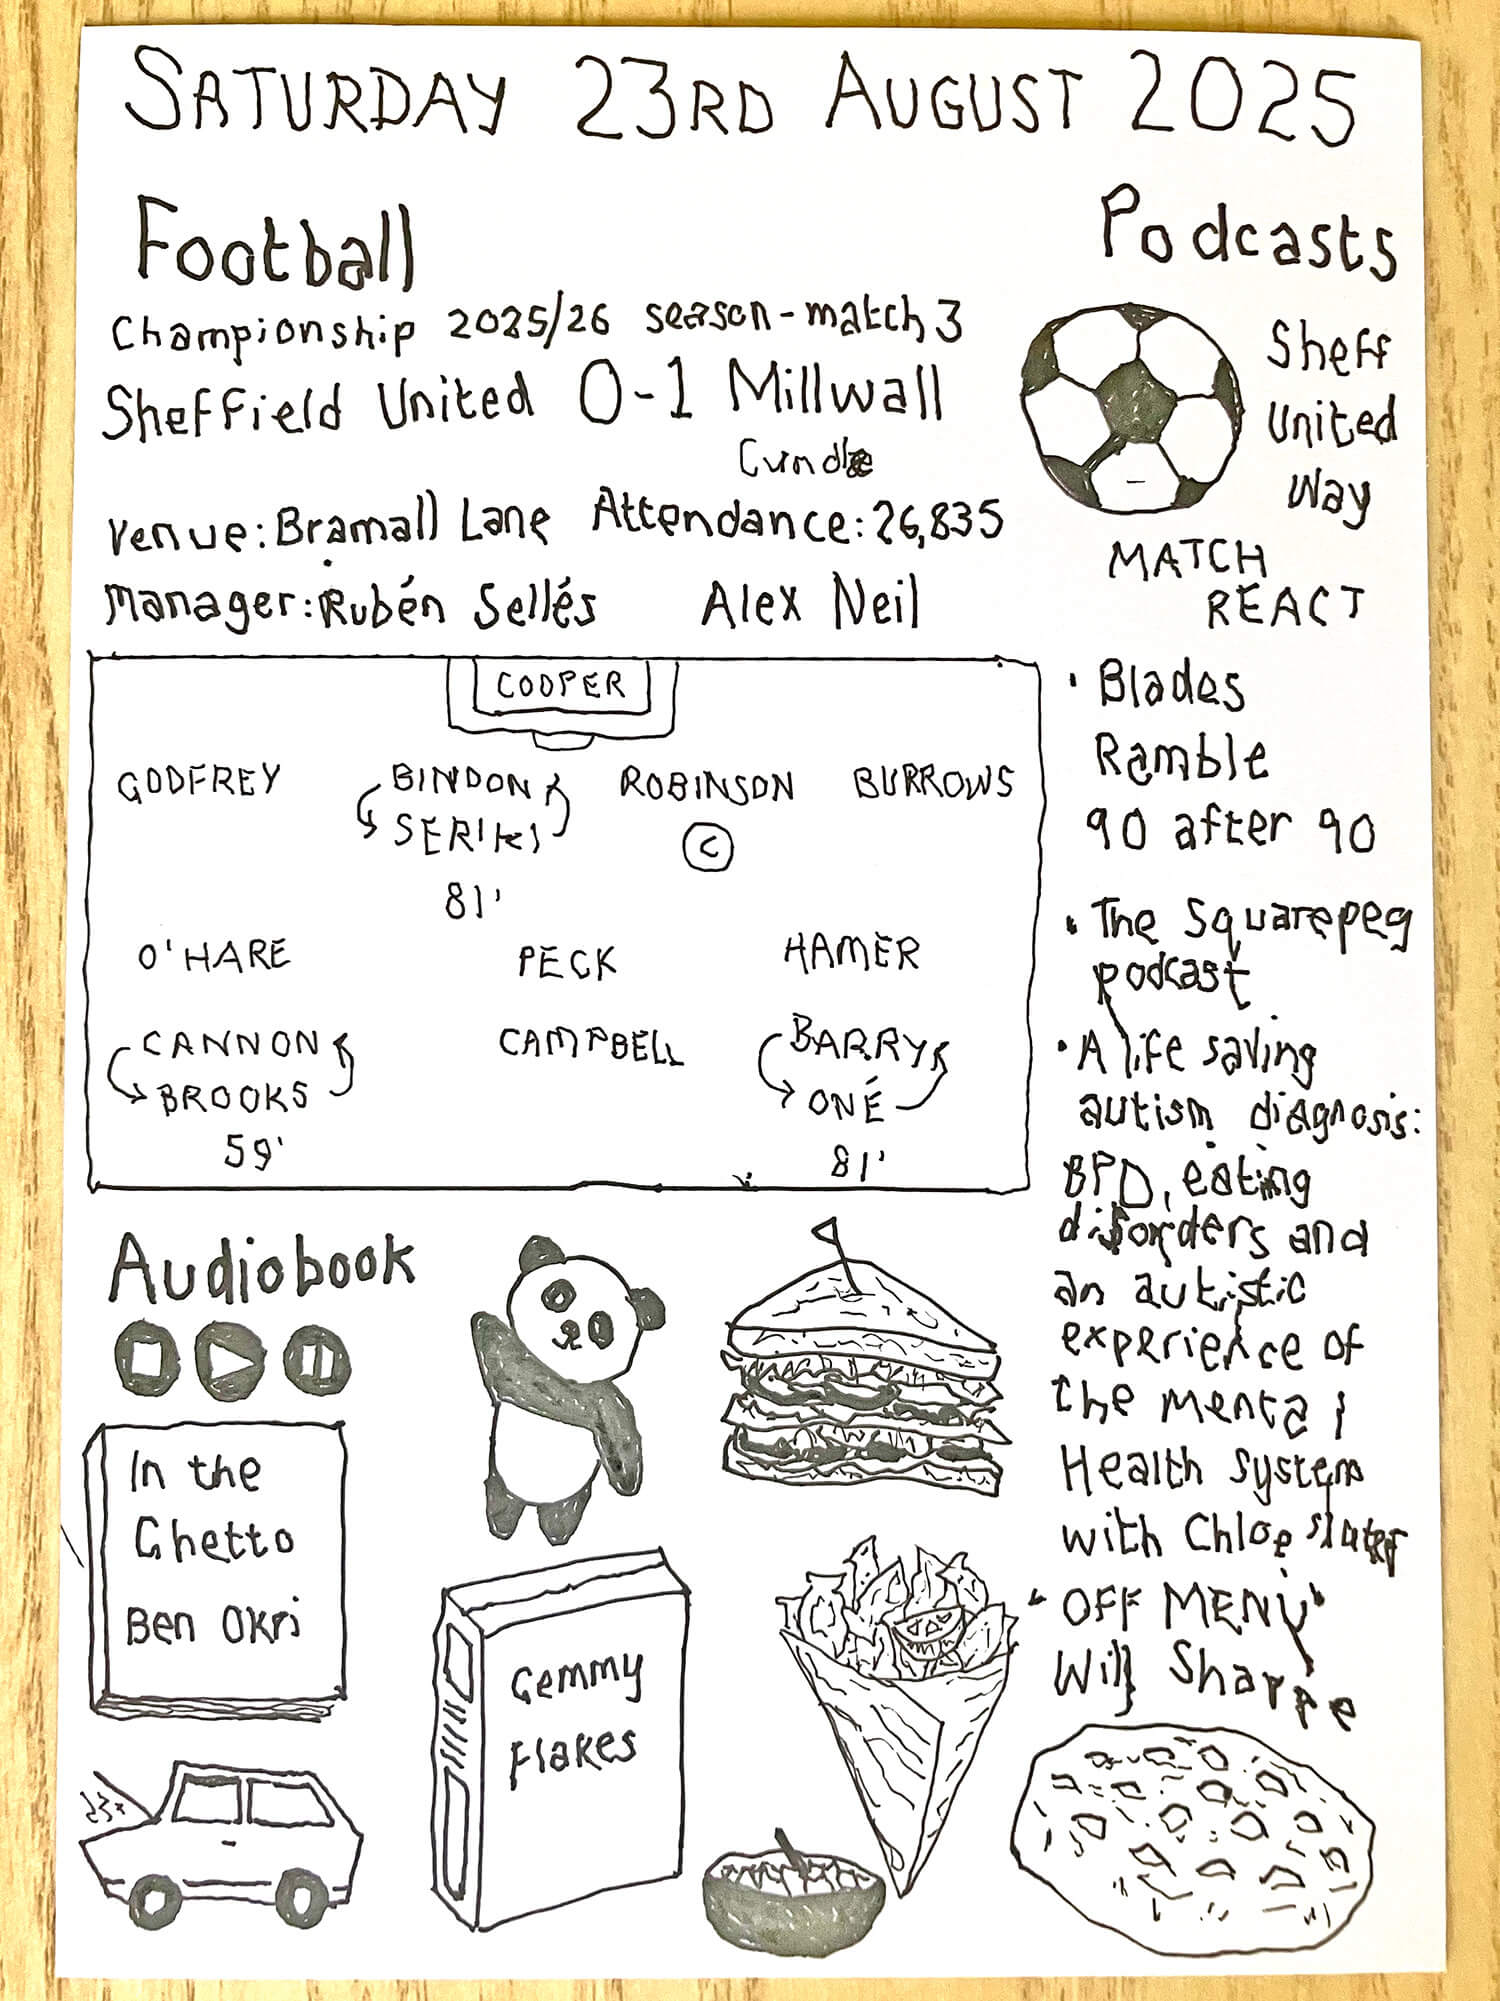 SATURDAY 23RD AUGUST 2025
Football
Championship 2025/26 season - match 3
Sheffield United 0-1 Millwall
Cundle
Venue: Bramall Lane Attendance: 26,835
Manager: Rubén Sellés Alex Neil
COOPER
GODFREY BINDON ROBINSON BURROWS
SERIKI C
81'
O'HARE PECK HAMER
CANNON CAMPBELL BARRY
BROOKS ONÉ
59' 81'
Podcasts
Sheff
United
Way
MATCH
REACT
• Blades
Ramble
90 after 90
• The Squarepeg
podcast
• A life saving
autism diagnosis:
BPD, eating
disorders and
an autistic
experience of
the mental
Health system
with Chloe Slater
• OFF MENU
Will Sharpe
Audiobook
In the
Ghetto
Ben Okri
Gemmy
Flakes